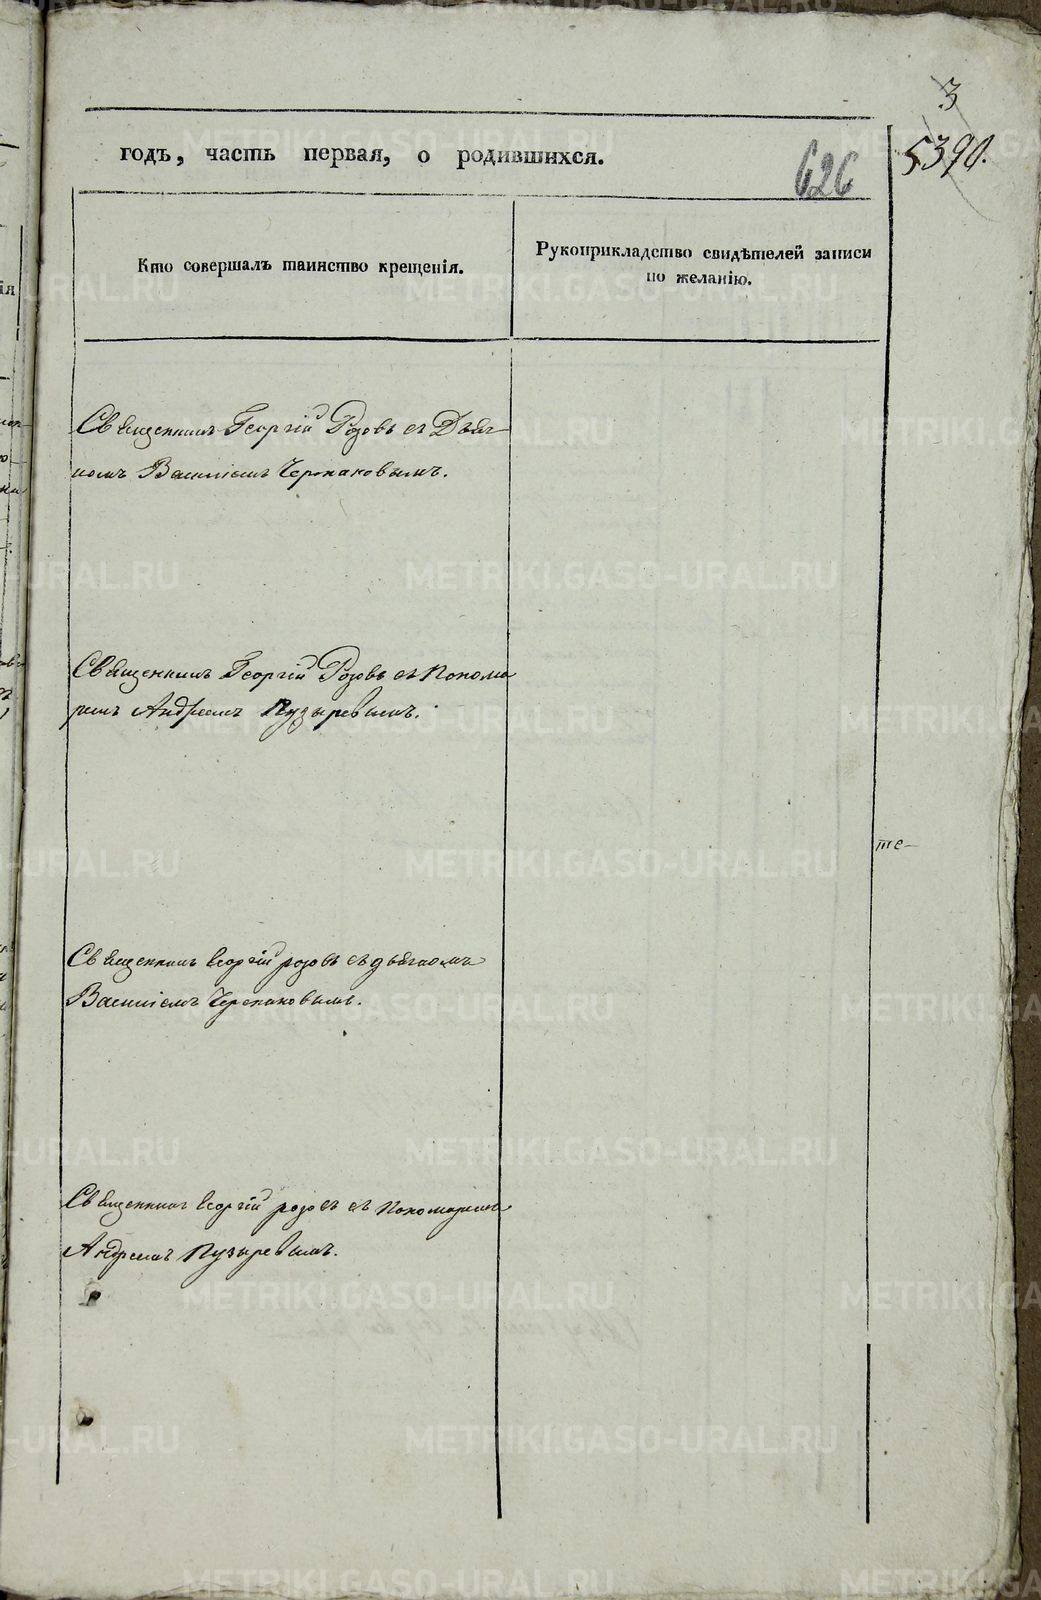 3
5390.
годъ, часть первая, о родившихся.
626
Кто совершалъ таинство крещенія.
Рукоприкладство свидѣтелей записи
по желанію.
Священникъ Георгій Розовъ съ Дьяч-
комъ Василіемъ Черпаковымъ.
Священникъ Георгій Розовъ съ Понома
ремъ Андреемъ Пузыревымъ.
те-
Священникъ Георгій розовъ съ дьячкомъ
Василіемъ Черпаковымъ.
Священникъ Георгій розовъ съ Пономаремъ
Андреемъ Пузыревымъ.
METRIKI.GASO-URAL.RU